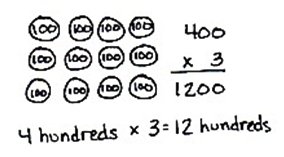 100 100 100 100 400
100 100 100 100 x 3
100 100 100 100 1200
4 hundreds x 3 = 12 hundreds